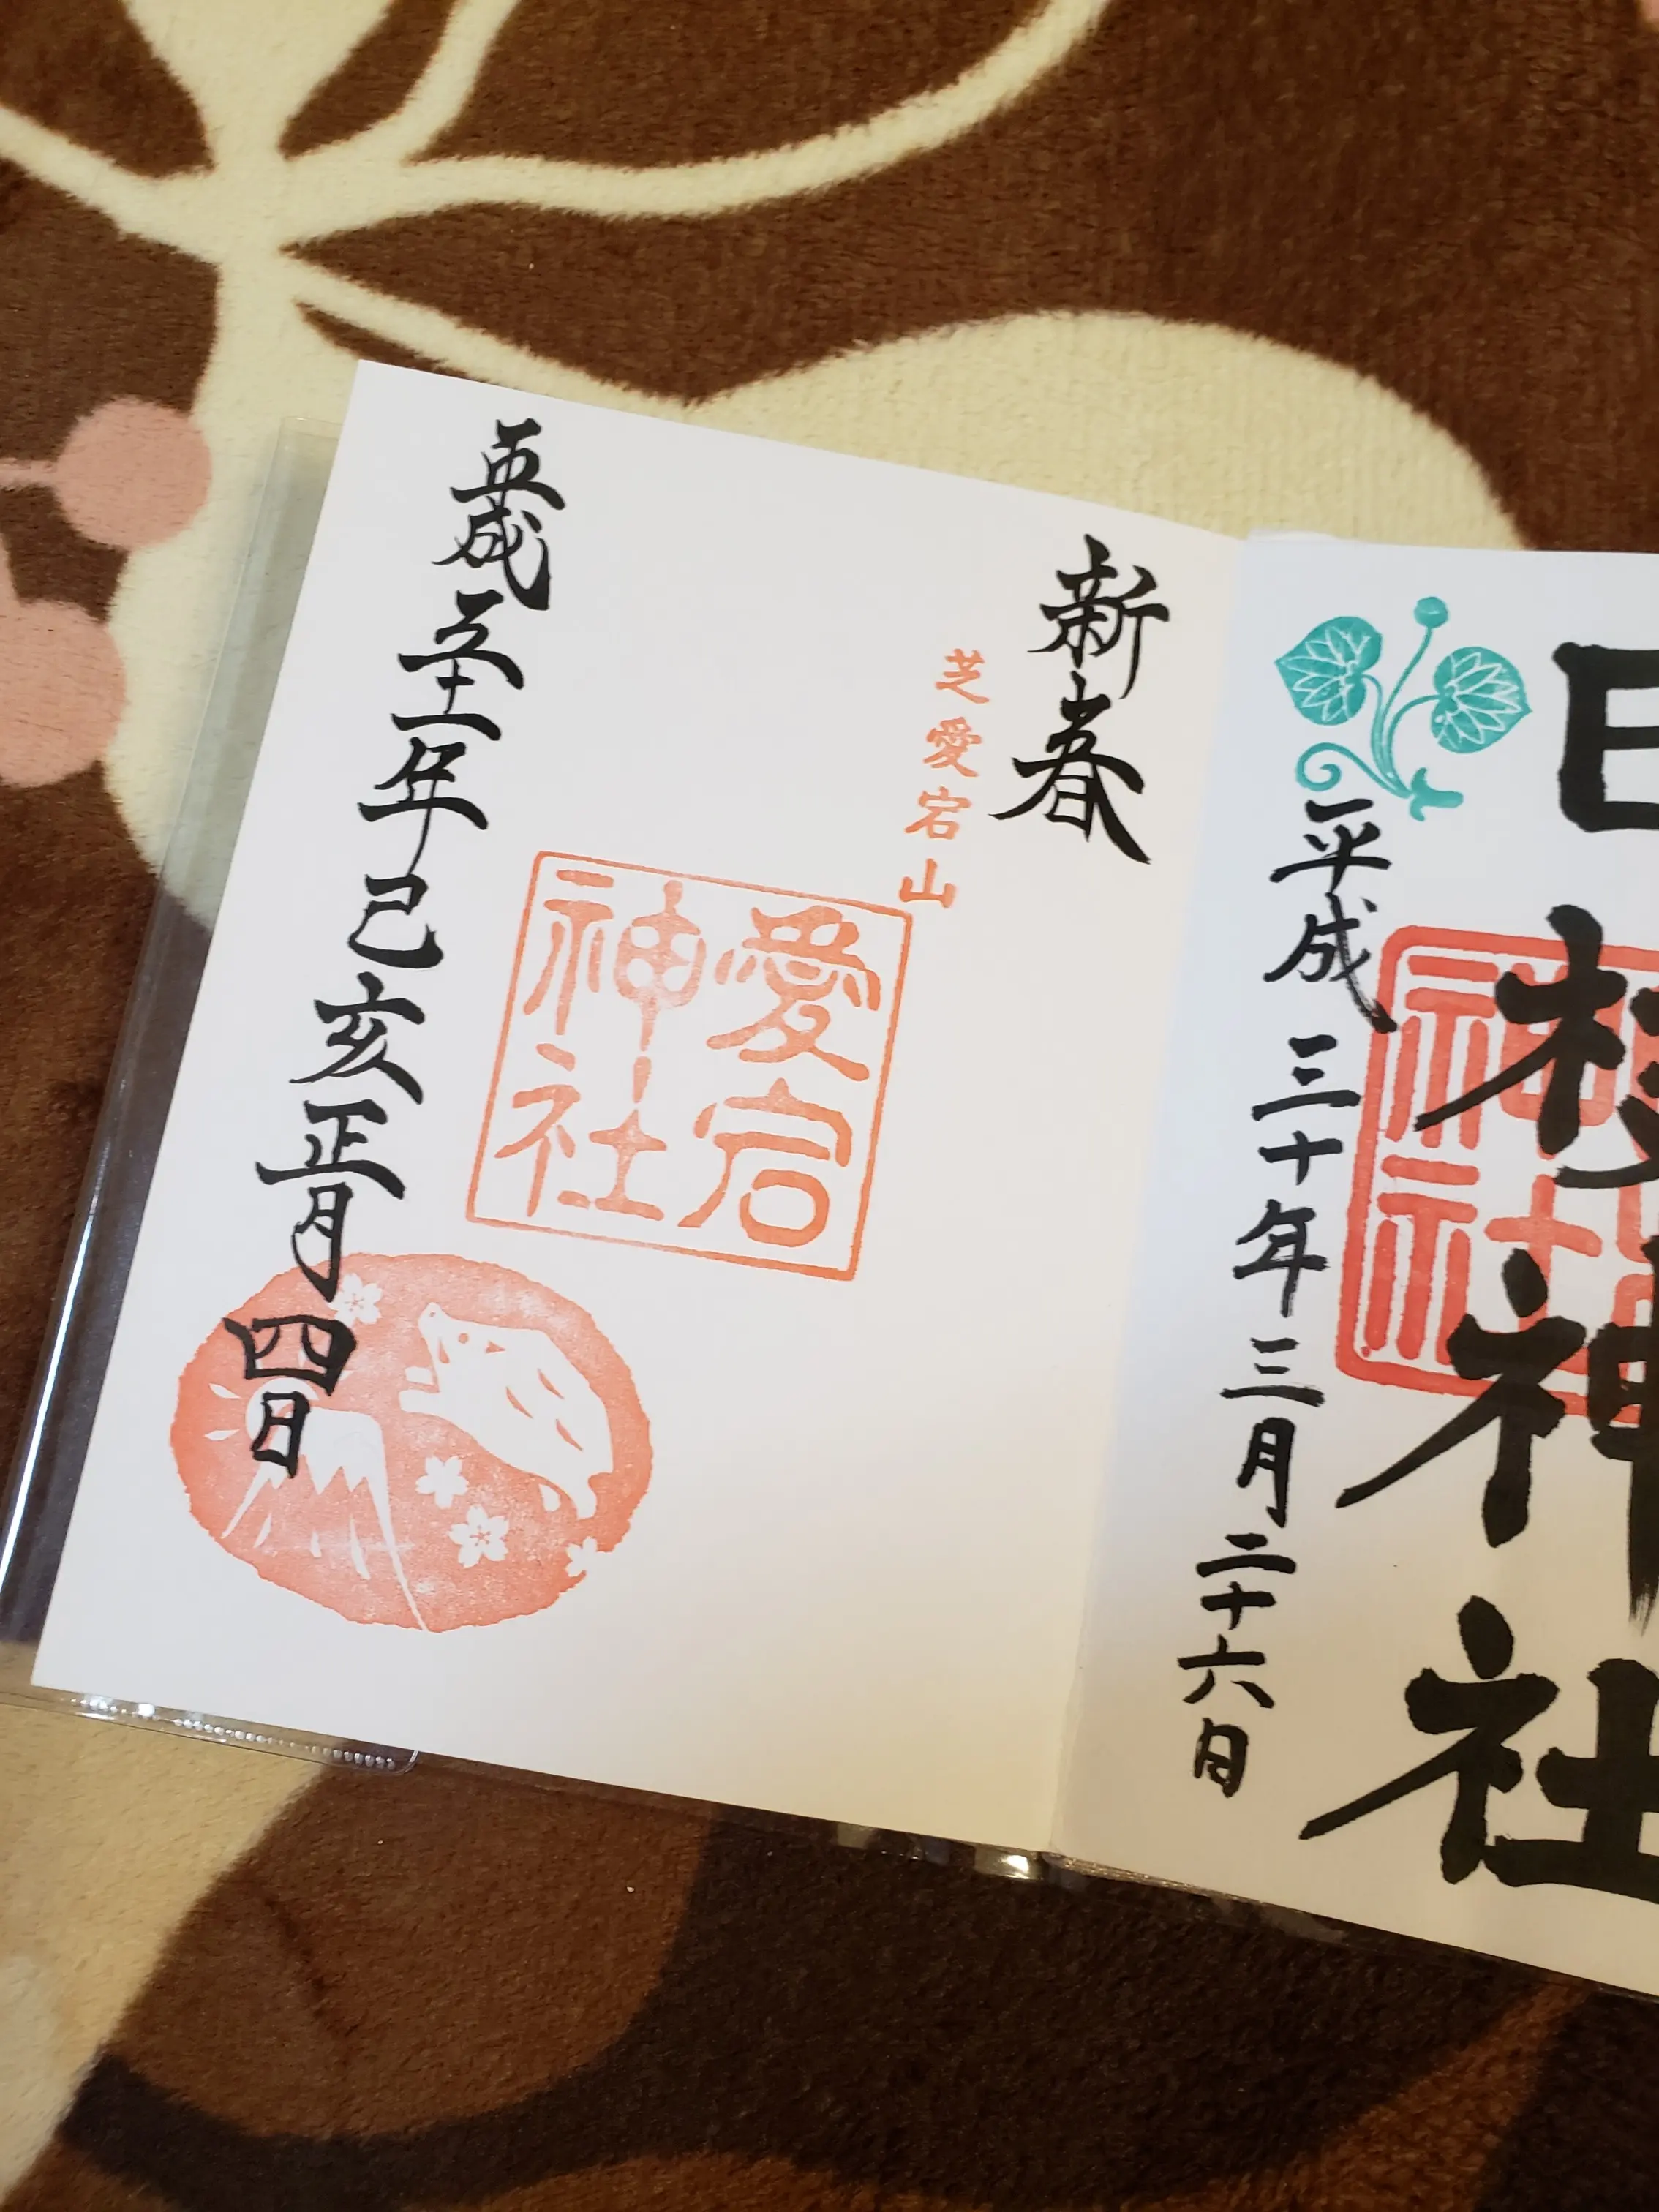 日枝神社
神社
平成三十年三月二十六日
新春
芝愛宕山
愛宕
神社
平成三十一年己亥正月四日